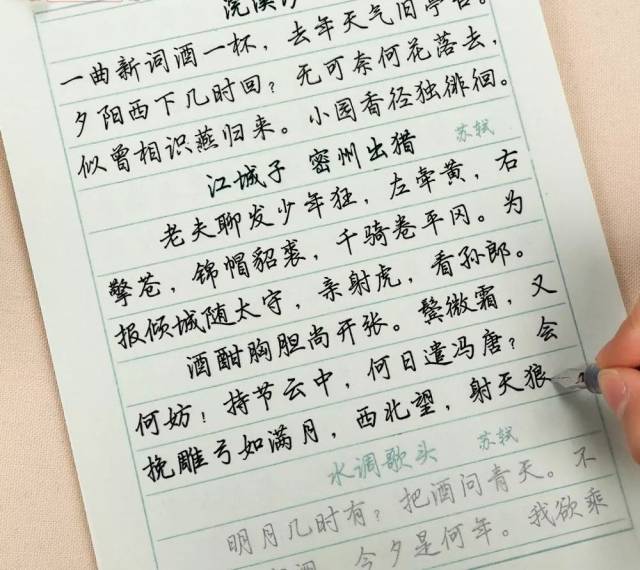 浣溪沙
一曲新词酒一杯，去年天气旧亭台。
夕阳西下几时回？无可奈何花落去，
似曾相识燕归来。小园香径独徘徊。
江城子 密州出猎 苏轼
老夫聊发少年狂，左牵黄，右
擎苍，锦帽貂裘，千骑卷平冈。为
报倾城随太守，亲射虎，看孙郎。
酒酣胸胆尚开张。鬓微霜，又
何妨！持节云中，何日遣冯唐？会
挽雕弓如满月，西北望，射天狼
水调歌头 苏轼
明月几时有？把酒问青天。不
今夕是何年。我欲乘